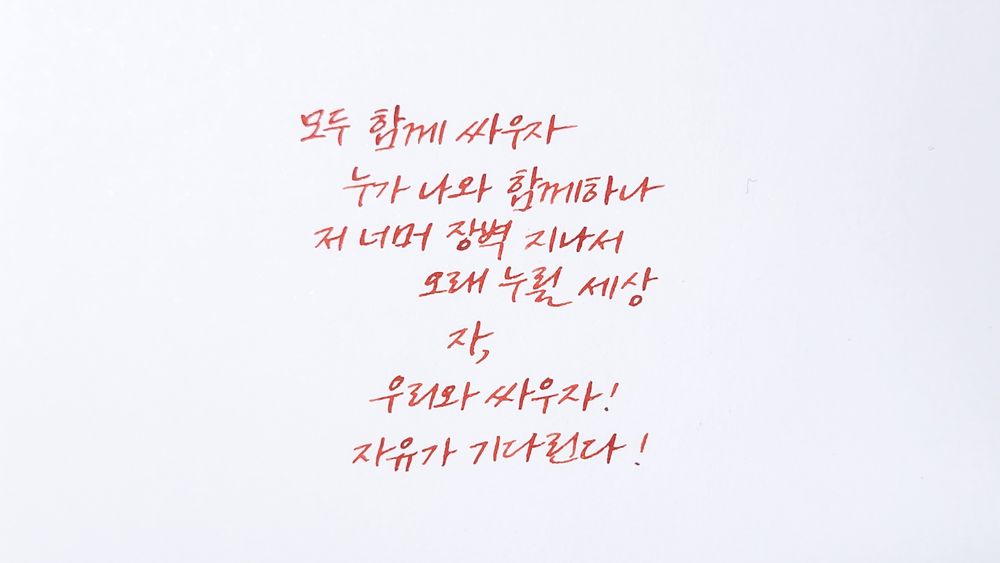 모두 함께 싸우자
누가 나와 함께하나
저 너머 장벽 지나서
오래 누릴 세상
자,
우리와 싸우자!
자유가 기다린다!